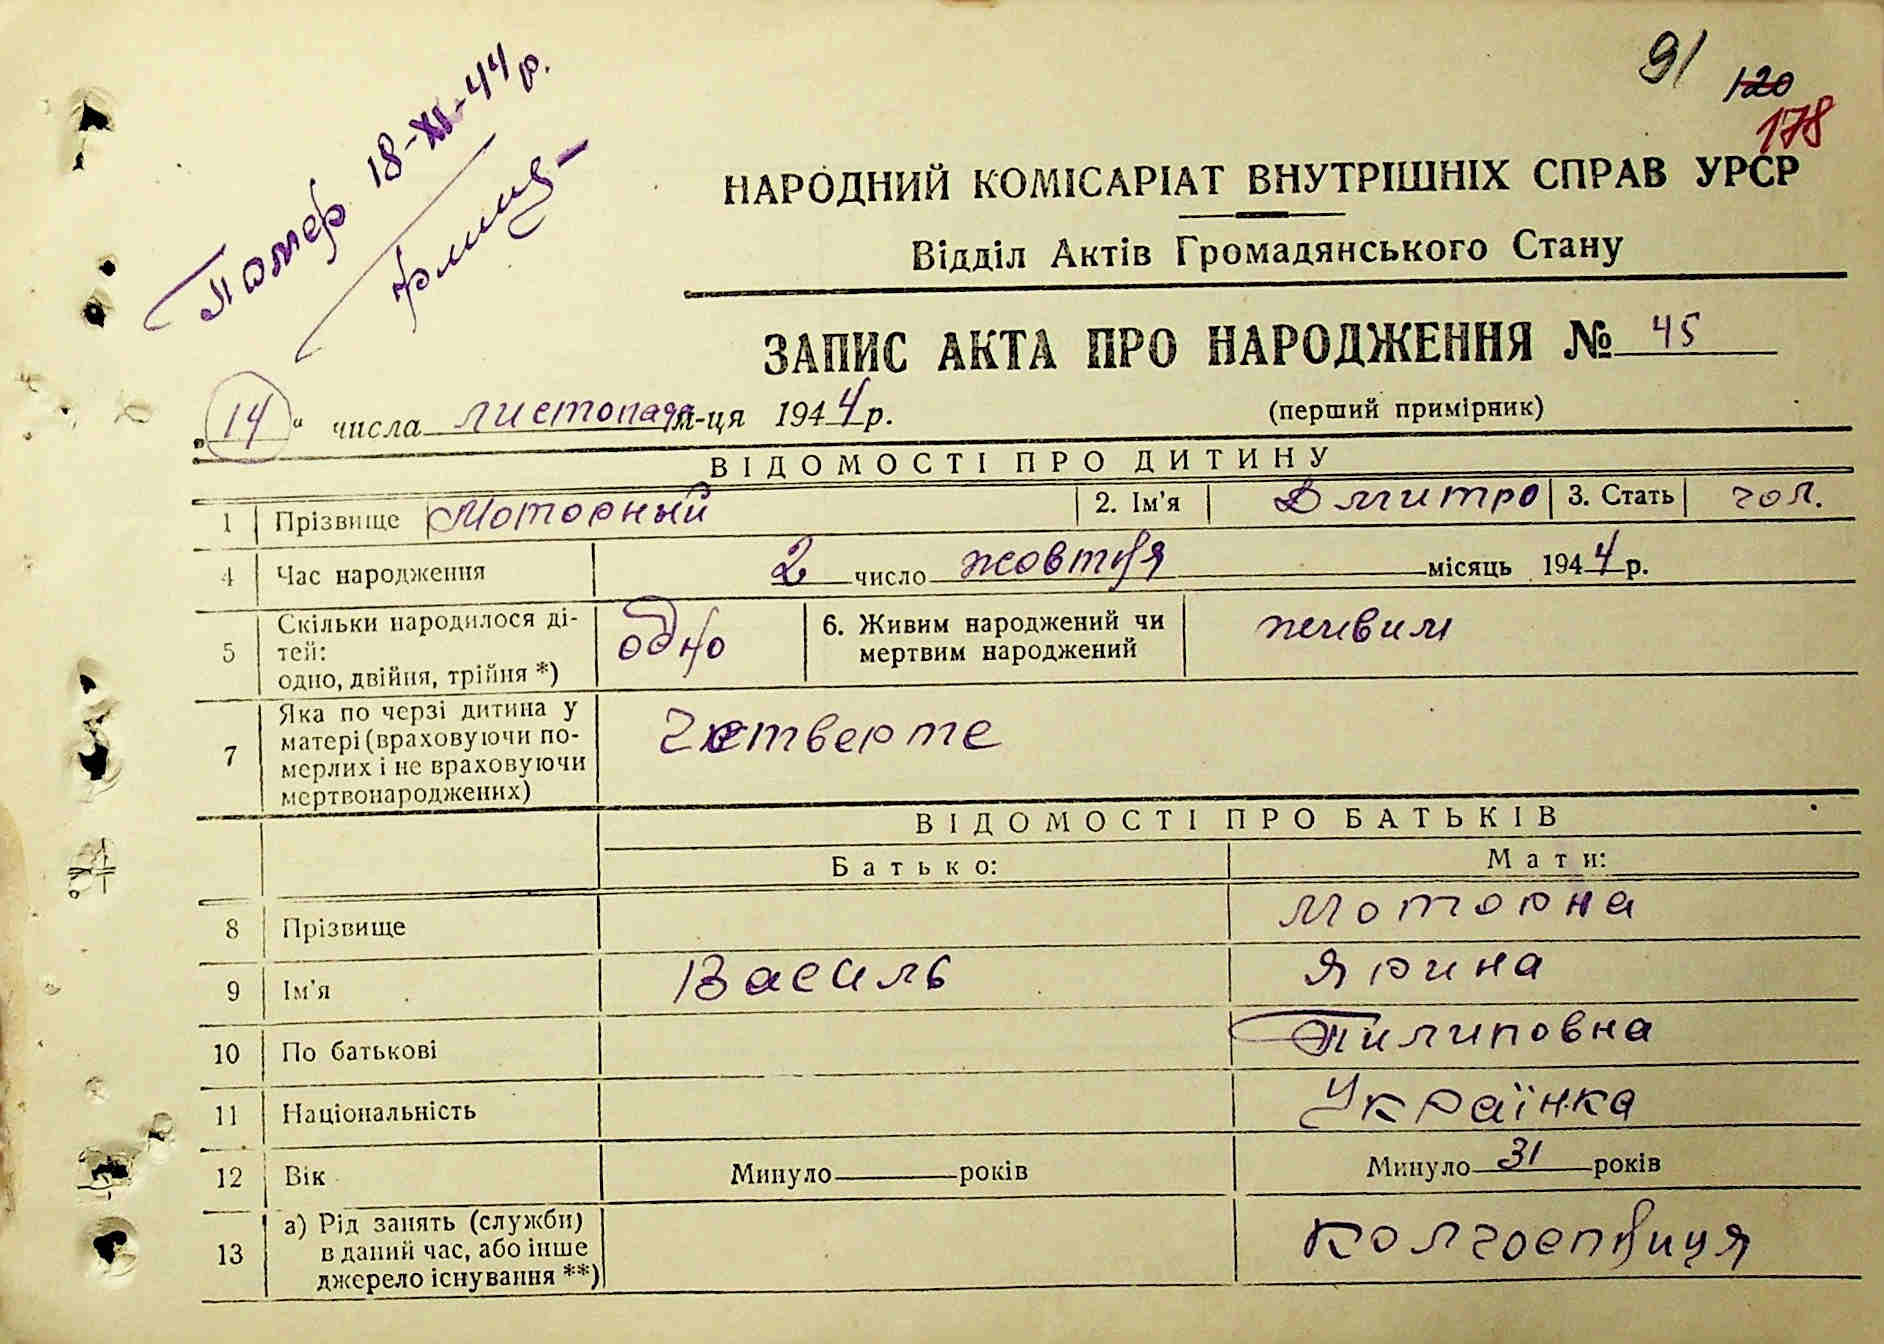 Помер 18-XI-44 р.
91
120
178
НАРОДНИЙ КОМІСАРІАТ ВНУТРІШНІХ СПРАВ УРСР
Відділ Актів Громадянського Стану
ЗАПИС АКТА ПРО НАРОДЖЕННЯ № 45
„14“ числа листопада м-ця 1944 р. (перший примірник)
ВІДОМОСТІ ПРО ДИТИНУ
1 Прізвище Моторный 2. Ім'я Дмитро 3. Стать чол.
4 Час народження 2 число жовтня місяць 1944 р.
5 Скільки народилося ді-
тей:
одно, двійня, трійня *) одно 6. Живим народжений чи
мертвим народжений живим
7 Яка по черзі дитина у
матері (враховуючи по-
мерлих і не враховуючи
мертвонароджених) Четверте
ВІДОМОСТІ ПРО БАТЬКІВ
Батько: Мати:
8 Прізвище Моторна
9 Ім'я Василь Ярина
10 По батькові Пилиповна
11 Національність Українка
12 Вік Минуло — років Минуло 31 років
13 а) Рід занять (служби)
в даний час, або інше
джерело існування **) колгоспниця